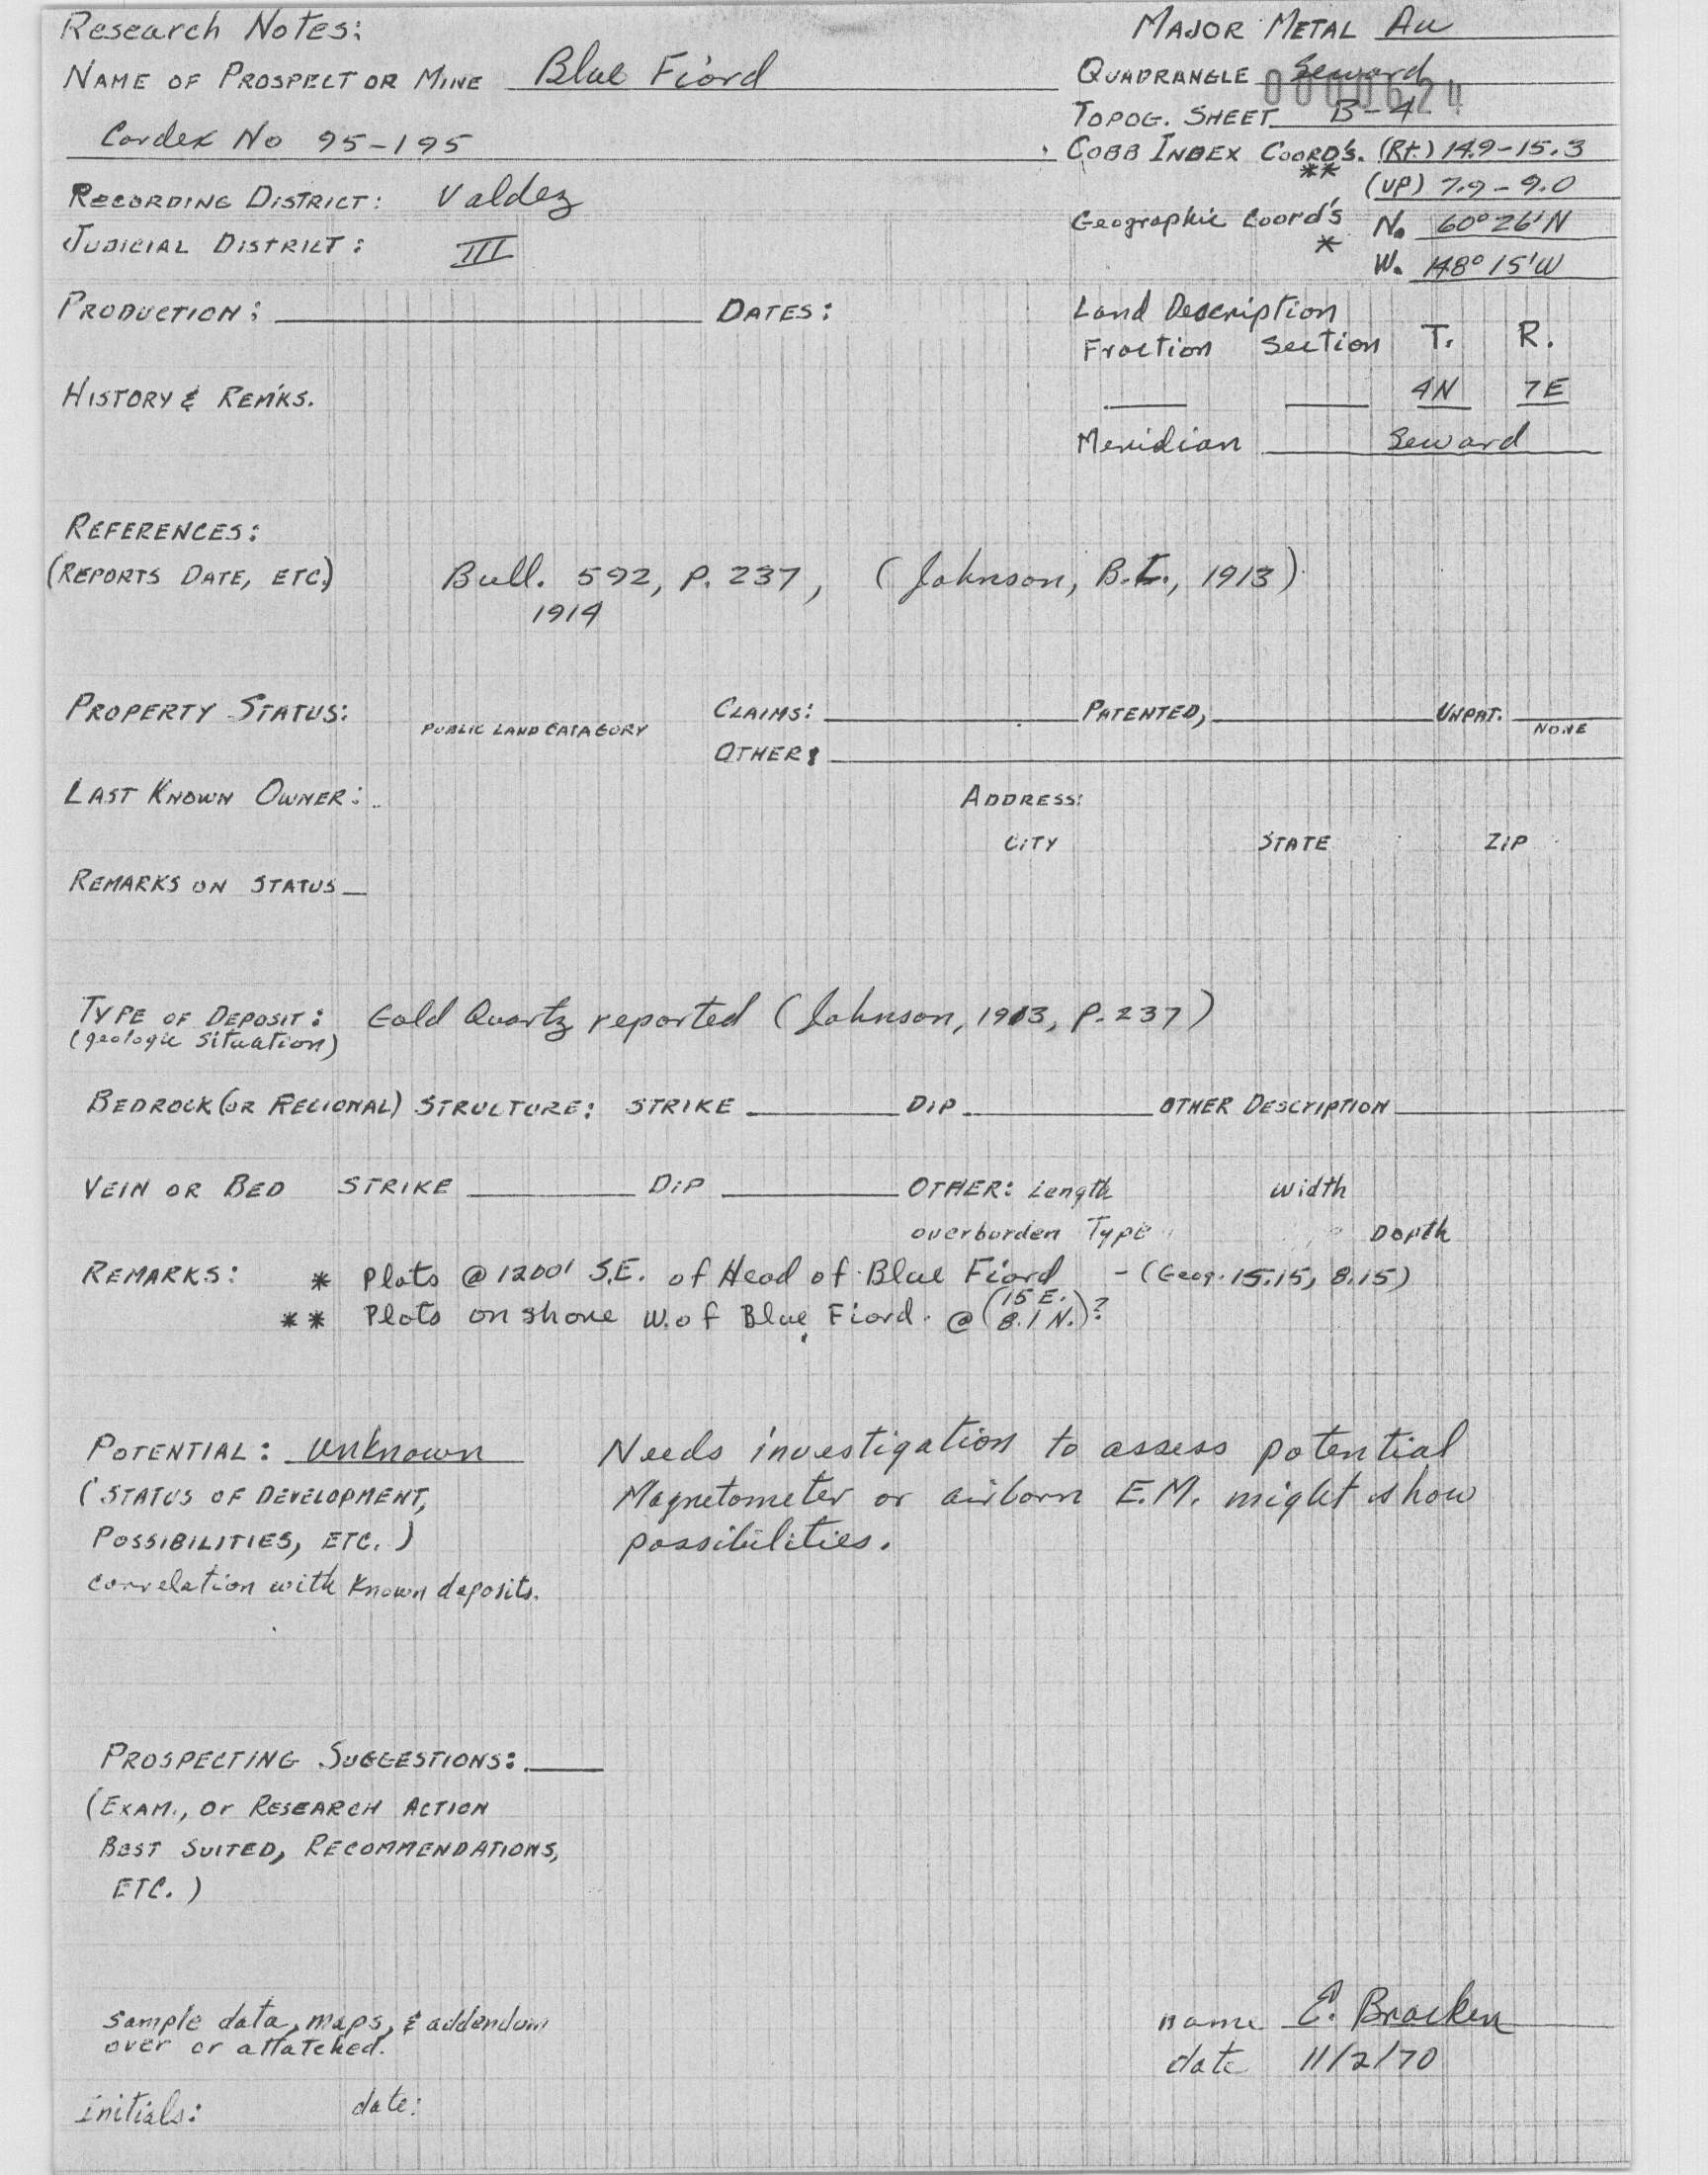 Research Notes:
MAJOR METAL Au
NAME OF PROSPECT OR MINE Blue Fiord
QUADRANGLE Seward
0000624
TOPOG. SHEET B-4
Cardex No 95-195
COBB INDEX COORD'S. (Rt.) 14.9-15.3
** (UP) 7.9-9.0
RECORDING DISTRICT: Valdez
Geographic Coord's N. 60° 26' N
JUDICIAL DISTRICT: III
* W. 148° 15' W
PRODUCTION: DATES:
Land Description
Fraction Section T. R.
HISTORY & REM'KS.
4N 7E
Meridian Seward
REFERENCES:
(REPORTS DATE, ETC.) Bull. 592, P. 237, (Johnson, B.L., 1913)
1914
PROPERTY STATUS: PUBLIC LAND CATAGORY CLAIMS: PATENTED, UNPAT. NONE
OTHER:
LAST KNOWN OWNER: ADDRESS:
CITY STATE ZIP
REMARKS ON STATUS
TYPE OF DEPOSIT: Gold Quartz reported (Johnson, 1913, P. 237)
(geologic situation)
BEDROCK (OR REGIONAL) STRUCTURE: STRIKE DIP OTHER DESCRIPTION
VEIN OR BED STRIKE DIP OTHER: Length Width
overburden Type Depth
REMARKS: * Plots @ 1200' S.E. of Head of Blue Fiord - (Geog. 15.15, 8.15)
** Plots on shore W. of Blue Fiord. @ (15 E. 8.1 N.)?
POTENTIAL: unknown Needs investigation to assess potential
(STATUS OF DEVELOPMENT, Magnetometer or airborn E.M. might show
POSSIBILITIES, ETC.) possibilities.
correlation with known deposits.
PROSPECTING SUGGESTIONS:
(EXAM., or RESEARCH ACTION
BEST SUITED, RECOMMENDATIONS,
ETC.)
sample data, maps, & addendum
over or attatched.
name E. Bracken
date 11/2/70
initials: date: